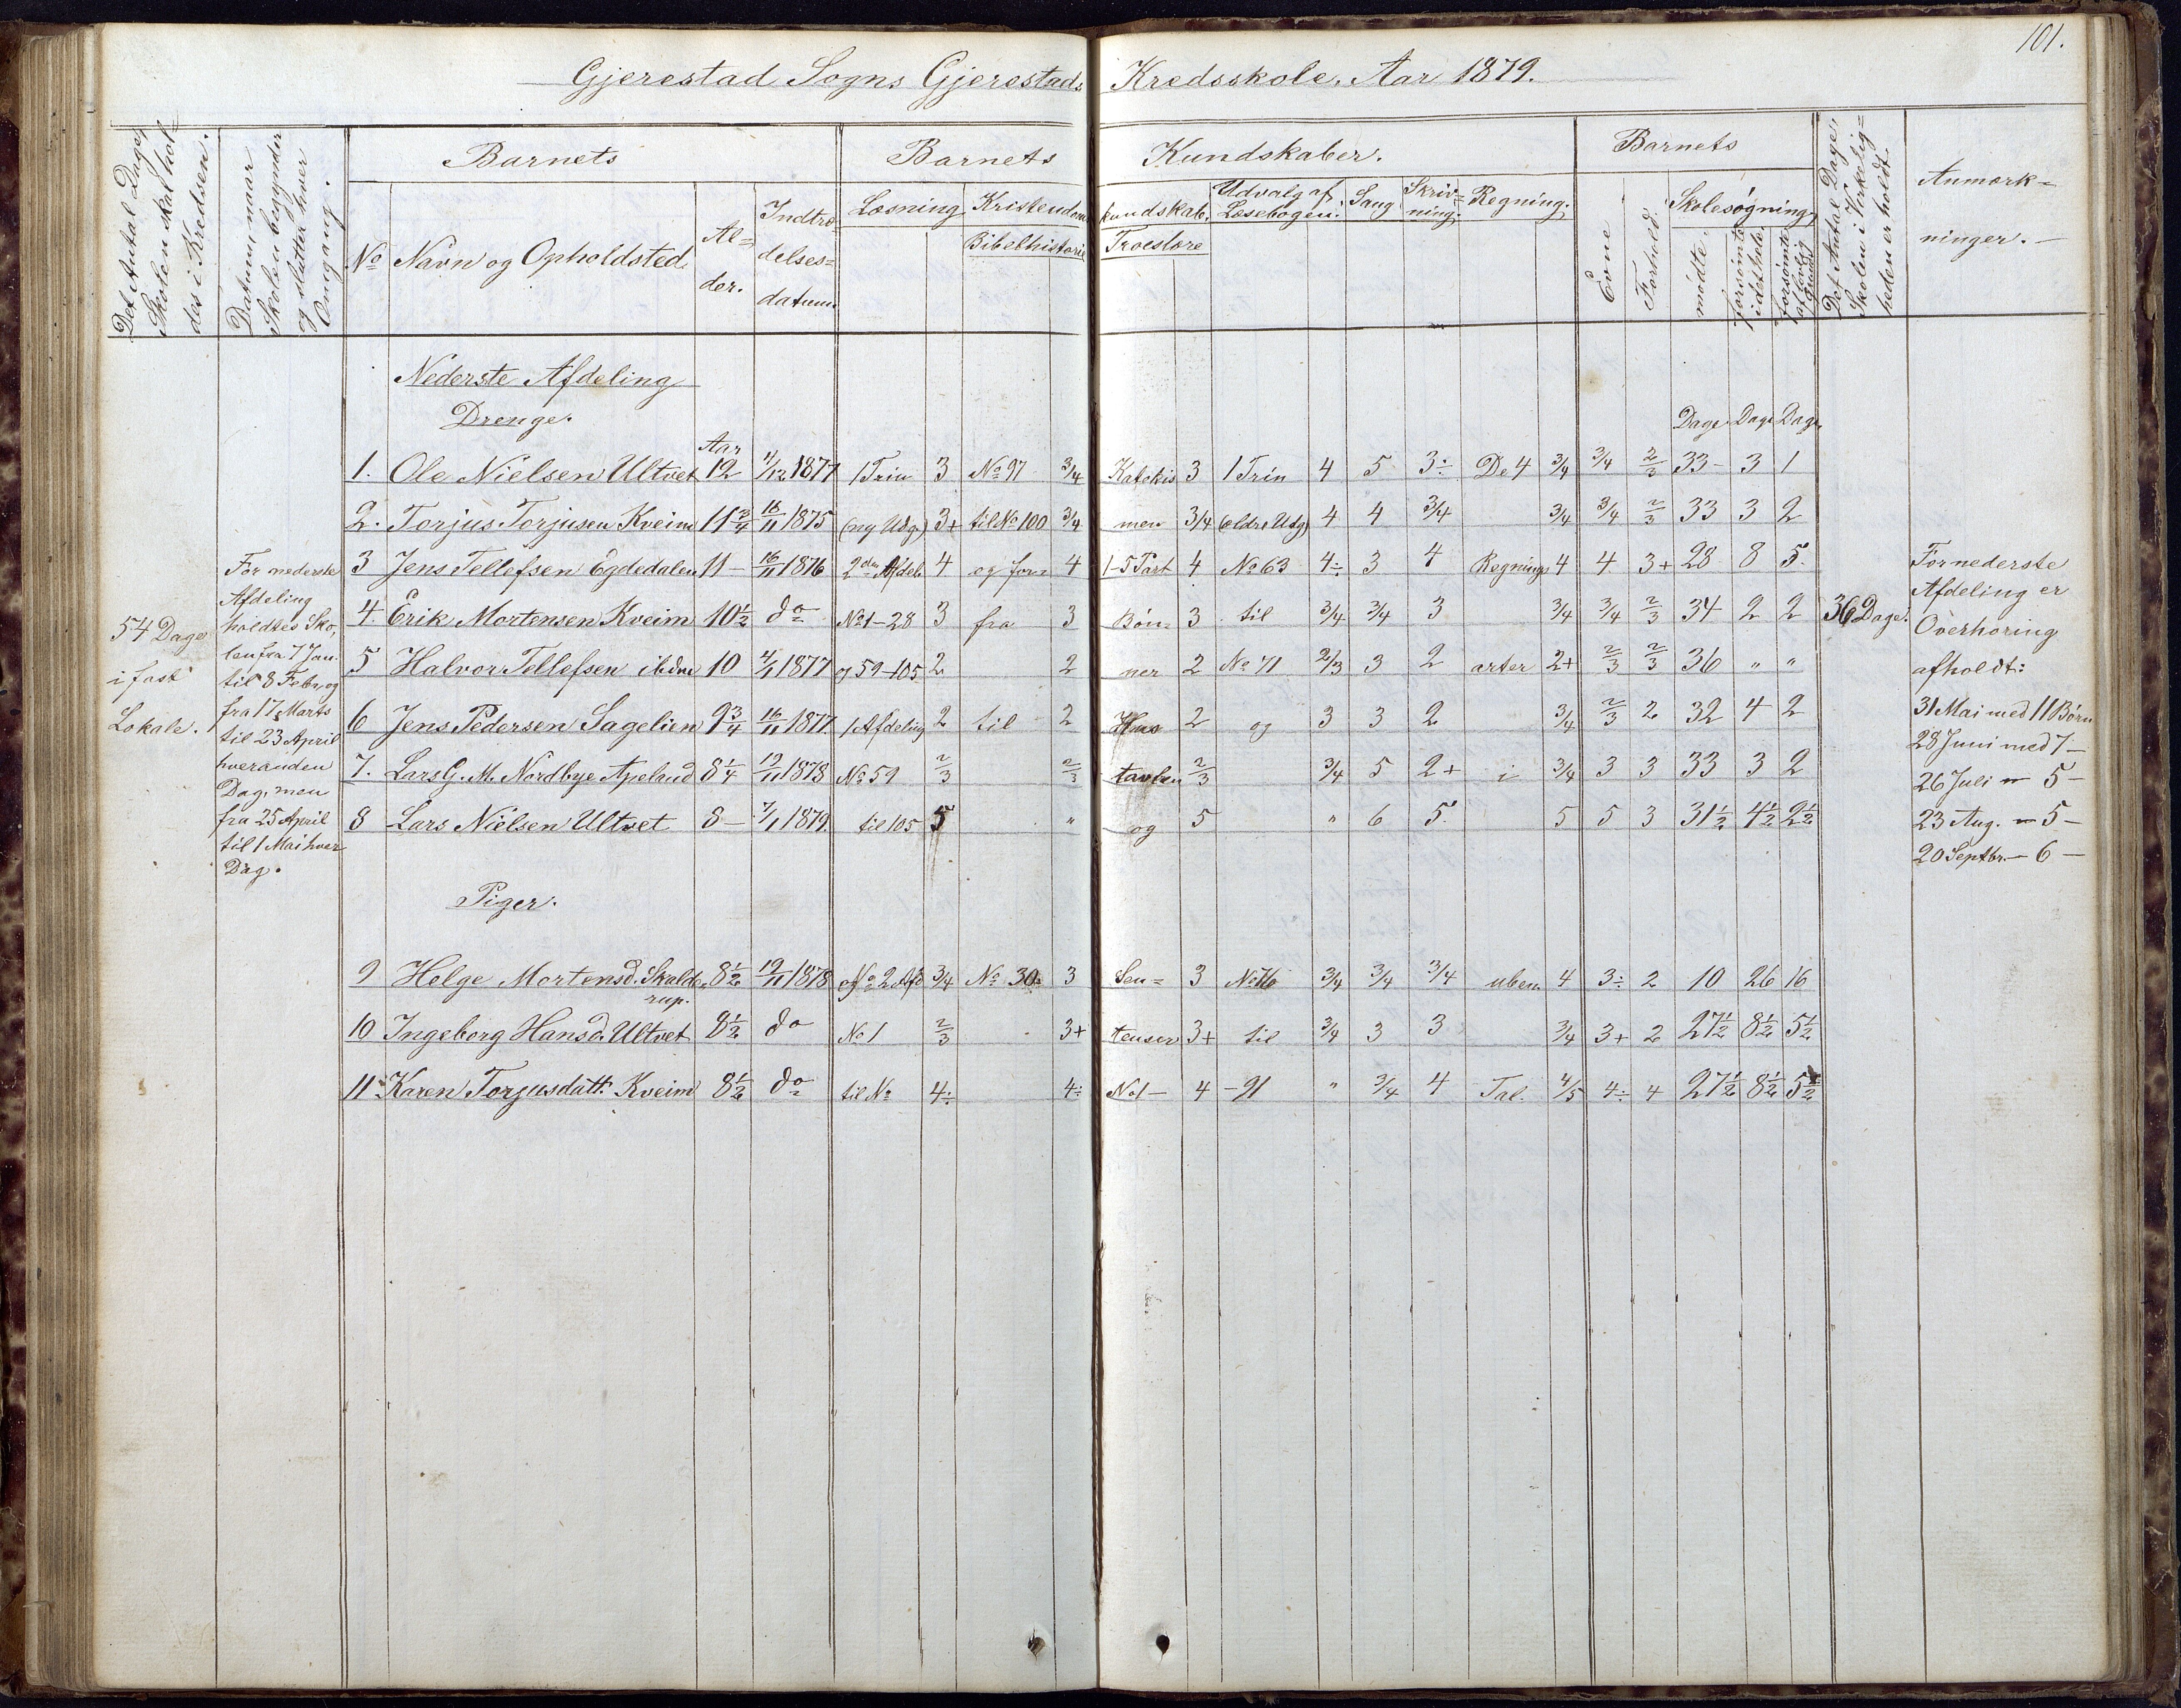 101.
Gjerestad Sogns Gjerestads Kredsskole. Aar 1879.
Det Antal Dage, Skolen skal holdes i Kredsen.
Datum, naar Skolen begynder og slutter hver Omgang.
Barnets
Barnets Kundskaber.
Barnets
Det Antal Dage, Skolen i Virkelig=heden er holdt.
Anmærk=
ninger. —
No Navn og Opholdsted. Al=der. Indtræ=delses=datum.
Læsning Kristendoms kundskab. Udvalg af Læsebogen. Sang. Skriv=ning. Regning.
Bibelhistorie Troeslære
Evne Forhold. Skolesøgning
mødte. forsømte idethele. forsømte af lovlig Grund.
Nederste Afdeling
Drenge.
Aar Dage Dage Dage
1. Ole Nielsen Ultvet 12 4/12 1877 1 Trin 3 No 97 3/4 Katekis 3 1 Trin 4 5 3÷ De 4 3/4 3/4 2/3 33 – 3 1
2. Torjus Torjusen Kveim 11 3/4 16/11 1875 (ny Udg.) 3+ til No 100 3/4 men 3/4 (ældre Udg) 4 4 3/4 3/4 3/4 2/3 33 3 2
3 Jens Tellefsen Egdedalen 11 – 16/11 1876 2den Afdel. 4 og for= 4 1-5 Part 4 No 63 4÷ 3 4 Regnings 4 4 3+ 28 8 5
4. Erik Mortensen Kveim 10 1/2 do No 1–28 3 fra 3 Bøn= 3 til 3/4 3/4 3 3/4 3/4 2/3 34 2 2
5 Halvor Tellefsen ibidm 10 4/1 1877 og 59–105 2 2 ner 2 No 71 2/3 3 2 arter 2+ 2/3 2/3 36 " "
6 Jens Pedersen Sagelien 9 3/4 16/11 1877 1 Afdeling 2 til 2 Hus 2 og 3 3 2 3/4 2/3 2 32 4 2
7. Lars G. M. Nordbye Apelrud 8 1/4 19/11 1878 No 59 2/3 2/3 tavlen 2/3 3/4 5 2+ i 3/4 3 3 33 3 2
8 Lars Nielsen Ultvet 8 – 7/1 1879 til 105 5 " og 5 " 6 5 5 5 3 31 1/2 4 1/2 2 1/2
Piger.
9 Helge Mortensd. Skalde=rup. 8 1/2 19/11 1878 og 2 Afd 3/4 No 30 3 Sen= 3 No 76 3/4 3/4 3/4 uben. 4 3÷ 2 10 26 16
10 Ingeborg Hansd. Ultvet 8 1/2 do No 1 2/3 3+ tenser 3+ til 3/4 3 3 3/4 3+ 2 27 1/2 8 1/2 5 1/2
11 Karen Torjusdatt. Kveim 8 1/2 do til No 4÷ 4÷ No 1– 4 –91 " 3/4 4 Tal. 4/5 4÷ 4 27 1/2 8 1/2 5 1/2
54 Dage
i fast
Lokale.
For nederste
Afdeling
holdtes Sko,
len fra 7 Jan.
til 8 Febr. og
fra 17 Marts
til 23 April
hveranden
Dag, men
fra 25 April
til 1 Mai hver
Dag.
36 Dage.
For nederste
Afdeling er
Overhøring
afholdt:
31 Mai med 11 Børn
28 Juni med 7 –
26 Juli – 5 –
23 Aug. – 5 –
20 Septbr. – 6 –